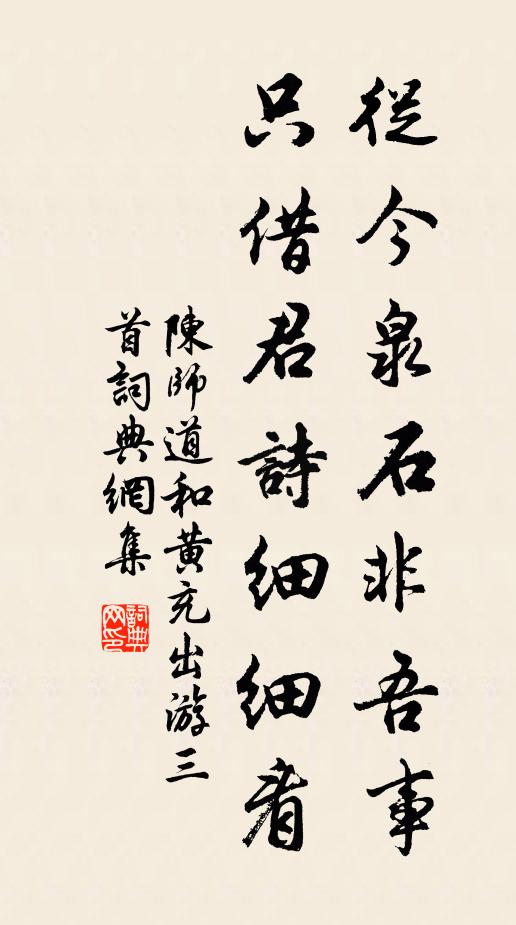 從今泉石非吾事
只借君詩細細看
陳師道和黄充出游三
首詞典網集
詞典網印